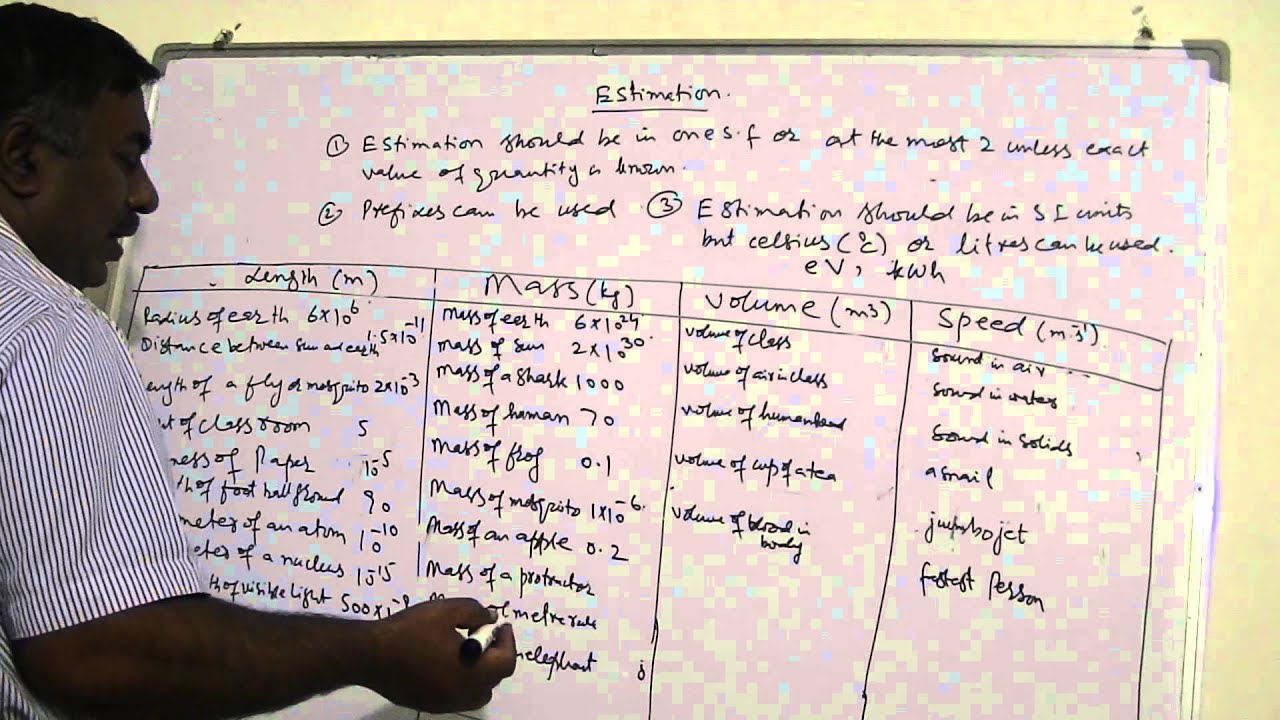 Estimation.
① Estimation should be in one s.f or at the most 2 unless exact
value of quantity is known.
② Prefixes can be used ③ Estimation should be in S I units
but celsius (°c) or litres can be used.
eV, kWh
Length (m) Mass (kg) Volume (m3) Speed (ms-1)
Radius of earth 6x10^6 Mass of earth 6x10^24 volume of class Sound in air
Distance between sun and earth 1.5x10^-11 mass of sun 2x10^30 volume of air in class Sound in water
length of a fly or mosquito 2x10^-3 Mass of a shark 1000 volume of human head Sound in solids
of class room 5 Mass of human 70 volume of cup of a tea a snail
ness of Paper 10^-5 Mass of frog 0.1 volume of blood in body jumbo jet
th of foot ball ground 90 Mass of mosquito 1x10^-6 fastest Person
meter of an atom 10^-10 Mass of an apple 0.2
eter of a nucleus 10^-15 Mass of a protractor
th of visible light 500x10 of metre rule
elephant